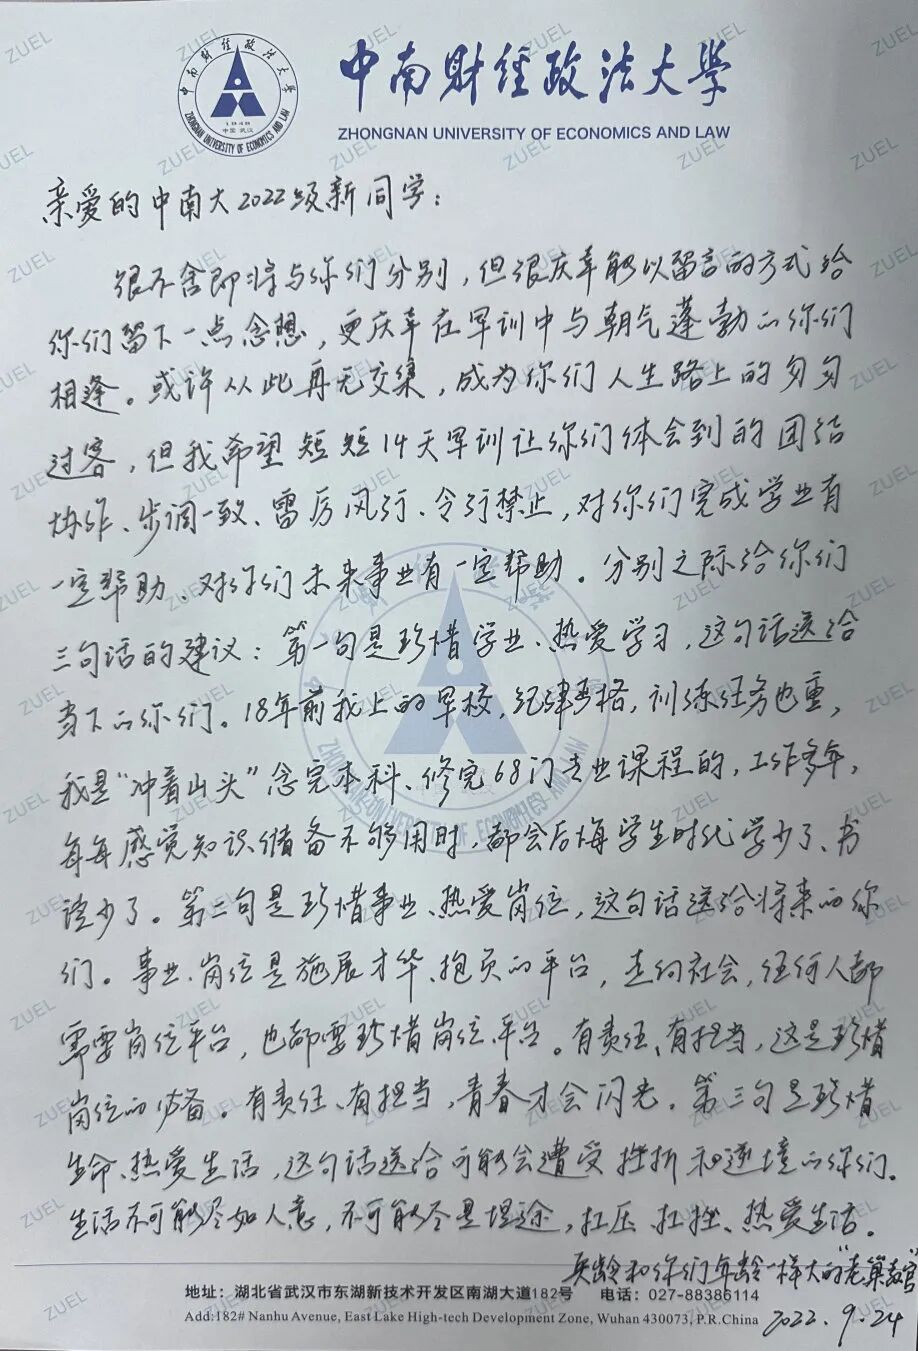 中南财经政法大学
ZHONGNAN UNIVERSITY OF ECONOMICS AND LAW
亲爱的中南大2022级新同学：
很不舍即将与你们分别，但很庆幸能以留言的方式给
你们留下一点念想，更庆幸在军训中与朝气蓬勃的你们
相逢。或许从此再无交集，成为你们人生路上的匆匆
过客，但我希望短短14天军训让你们体会到的团结
协作、步调一致、雷厉风行、令行禁止，对你们完成学业有
一定帮助、对你们未来事业有一定帮助。分别之际给你们
三句话的建议：第一句是珍惜学业、热爱学习，这句话送给
当下的你们。18年前我上的军校，纪律严格，训练任务也重，
我是“冲着山头”念完本科、修完68门专业课程的，工作多年，
每每感觉知识储备不够用时，都会后悔学生时代学少了、书
读少了。第二句是珍惜事业、热爱岗位，这句话送给将来的你
们。事业、岗位是施展才华、抱负的平台，走向社会，任何人都
需要岗位平台，也都要珍惜岗位平台。有责任、有担当，这是珍惜
岗位的必备。有责任、有担当，青春才会闪光。第三句是珍惜
生命、热爱生活，这句话送给可能会遭受挫折和逆境的你们。
生活不可能尽如人意，不可能尽是坦途，扛压、扛挫、热爱生活。
兵龄和你们年龄一样大的“老巢教官”
2022.9.24
地址：湖北省武汉市东湖新技术开发区南湖大道182号 电话：027-88386114
Add:182# Nanhu Avenue, East Lake High-tech Development Zone, Wuhan 430073, P.R.China